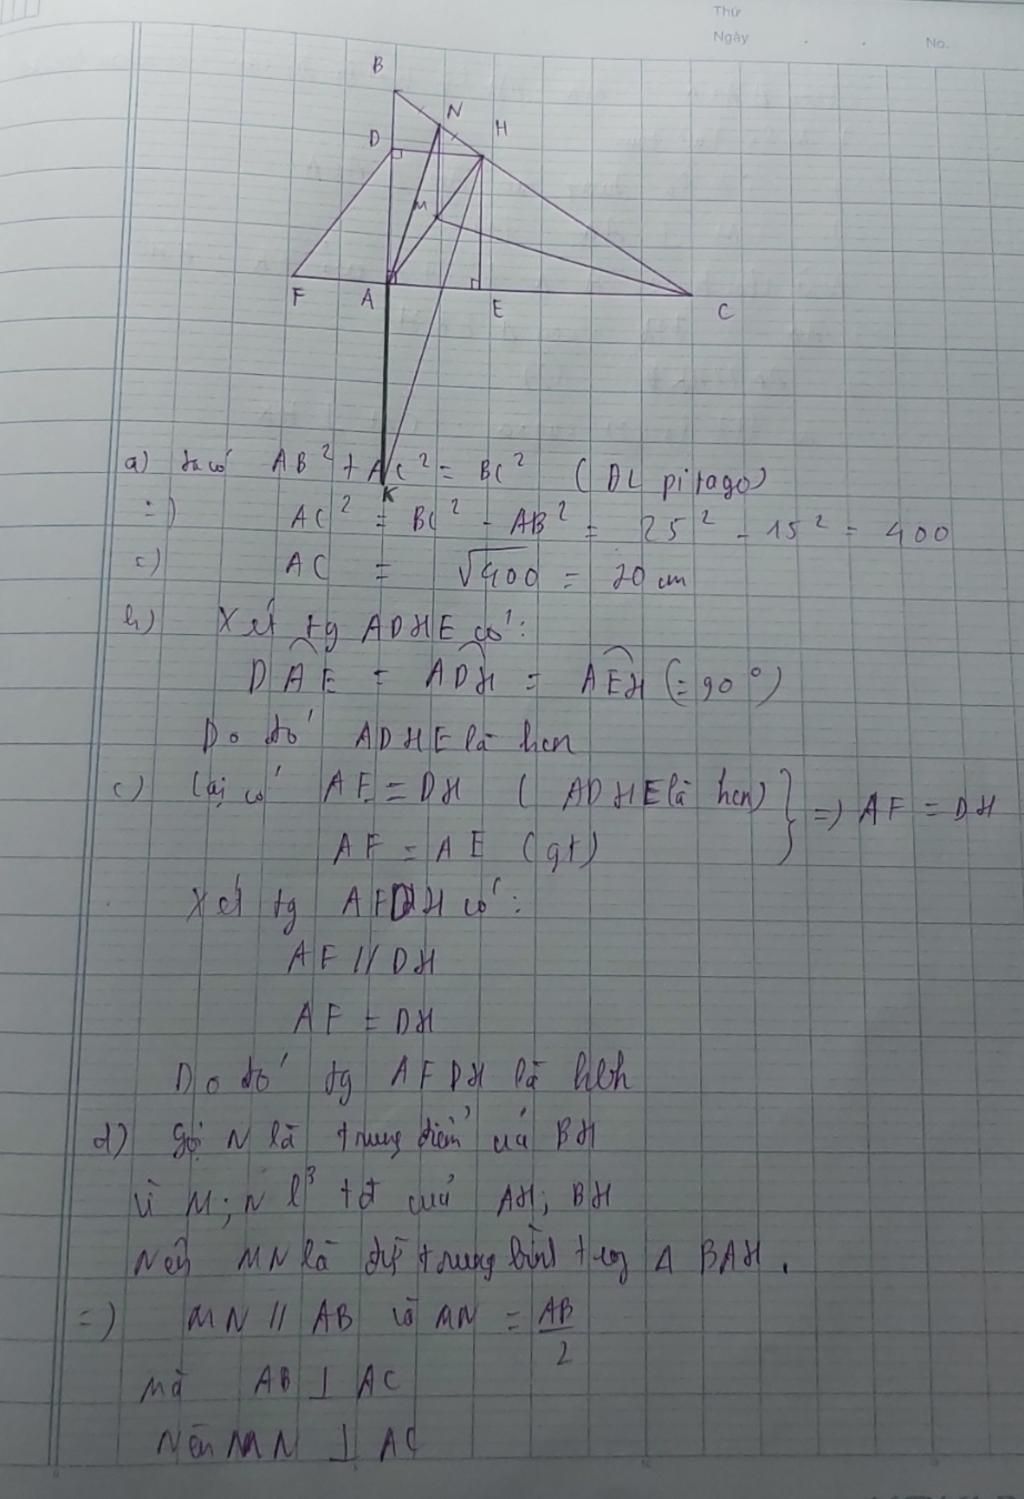 Thứ
Ngày . . No.
B
N
D H
M
F A E C
K
a) ta có AB² + AC² = BC² (DL pitago)
=) AC² = BC² - AB² = 25² - 15² = 400
=) AC = √400 = 20 cm
b) Xét tg ADHE có:
DAE = ADH = AEH (= 90°)
Do đó ADHE là hcn
c) Lại có AE = DH ( ADHE là hcn) } =) AF = DH
AF = AE (gt)
Xét tg AFDH có:
AF // DH
AF = DH
Do đó tg AFDH là hbh
d) gọi N là trung điểm của BH
Vì M; N là tđ của AH; BH
Nên MN là đg trung bình trog Δ BAH.
=) MN // AB và MN = AB/2
mà AB ⊥ AC
Nên MN ⊥ AC